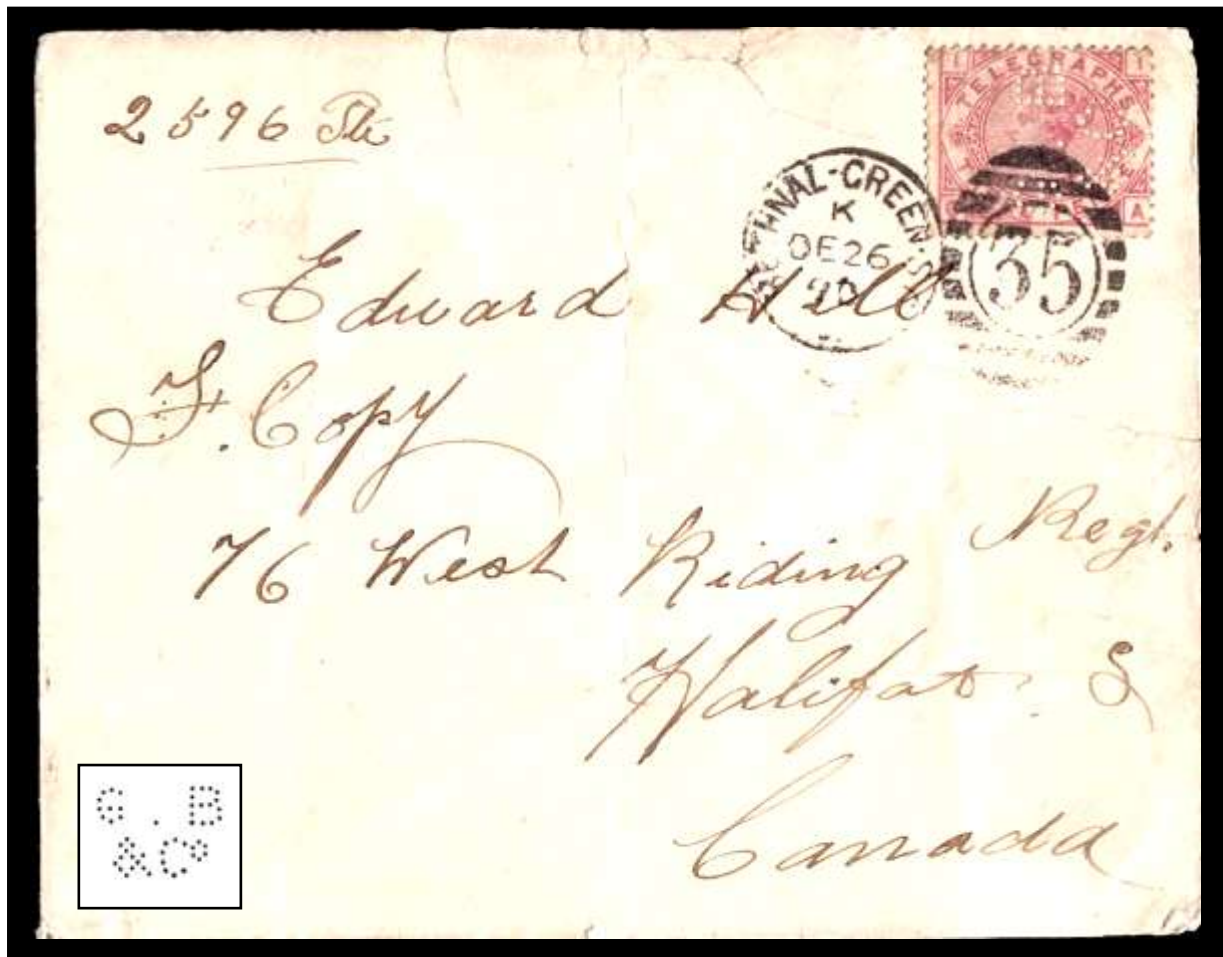 2596 Pte
TELEGRAPHS
I I
A
BETHNAL-GREEN.S.
K
DE26
90
35
Edward Hill
F. Copy
76 West Riding Regt.
Halifax S
Canada
G . B
&Co